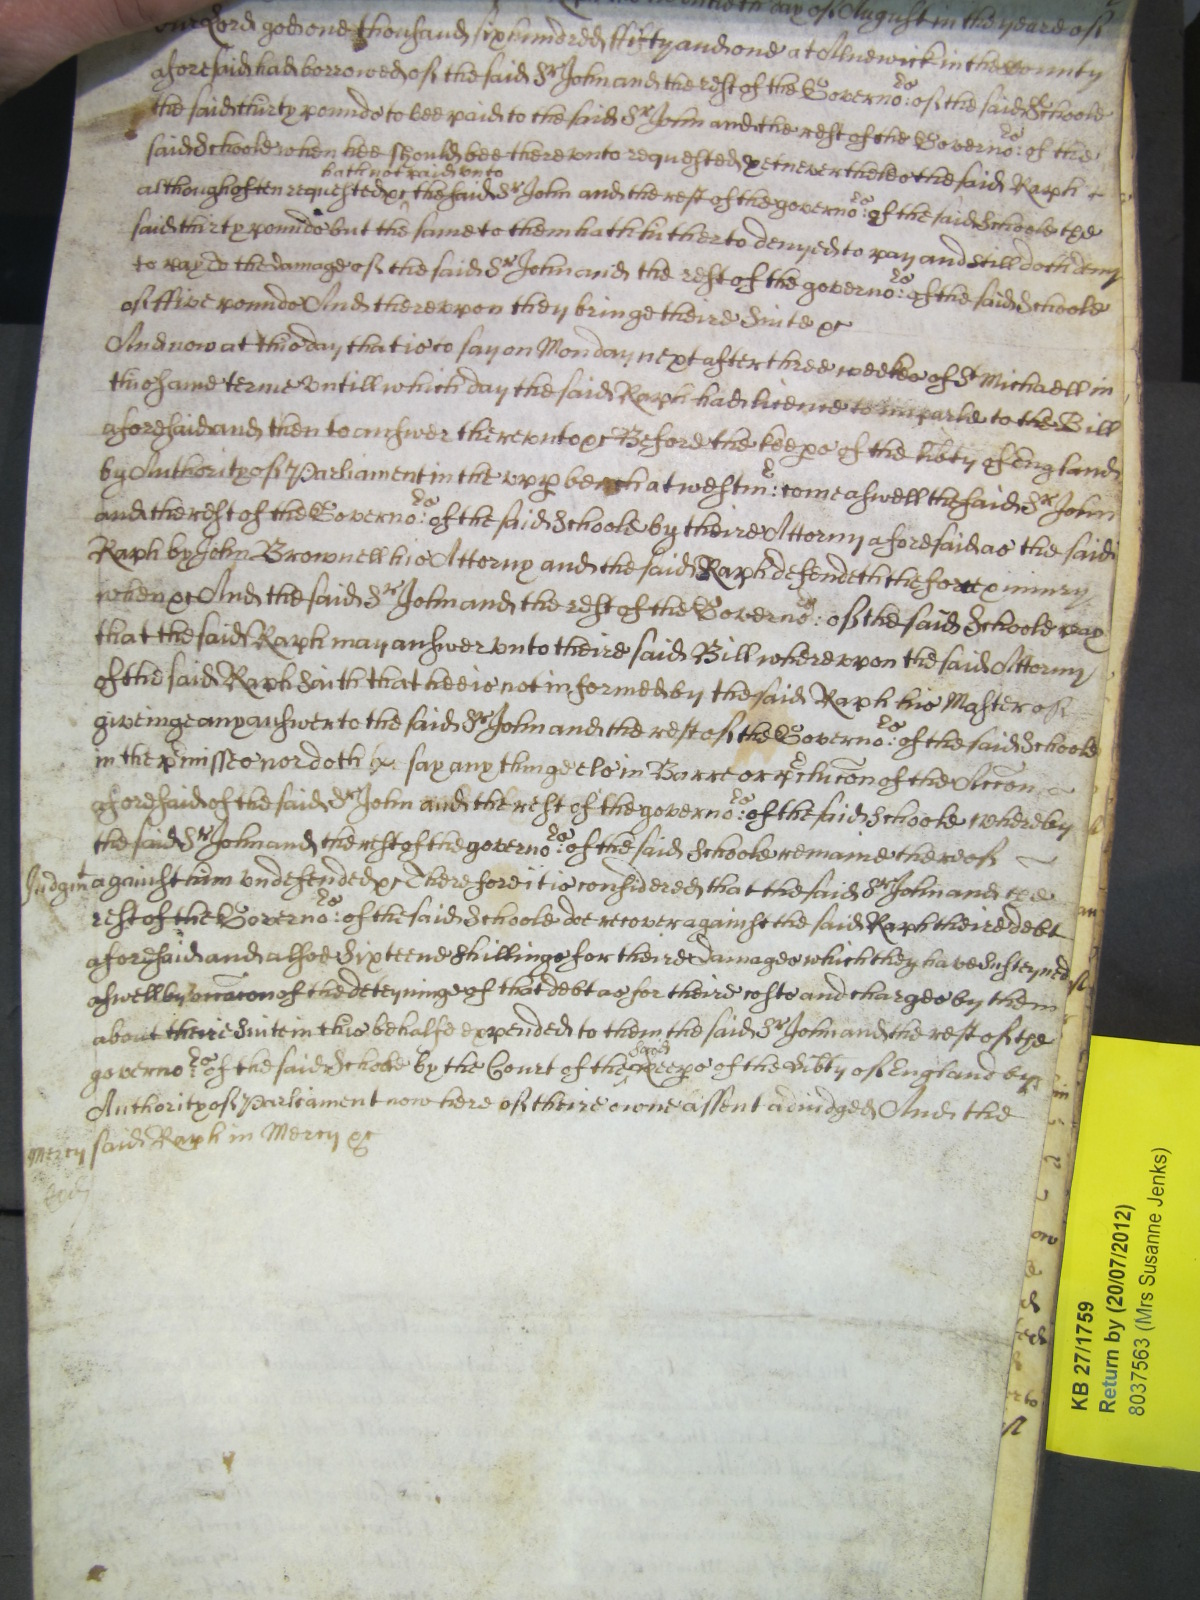 the twentieth day of August in the yeare of
our Lord god one thousand six hundred ffifty and one at Alnewick in the County
aforesaid had borrowed of the said Sr John and the rest of the Governo:rs of the said Schoole
the said thirty pounds to bee paid to the said Sr John and the rest of the Governo:rs of the
said Schoole when hee should bee thereunto requested yet neverthelesse the said Raph
hath not paid unto
although often requested &c the said Sr John and the rest of the governo:rs of the said Schoole the
said thirty pounds but the same to them hath hitherto denyed to pay and still doth deny
to pay to the damage of the said Sr John and the rest of the governo:rs of the said Schoole
of ffive pounds And thereupon they bringe theire Suite &c
And now at this day that is to say on Monday next after three weekes of St Michaell in
this same terme untill which day the said Raph had licence to imparle to the Bill
aforesaid and then to answer thereunto &c Before the keeps of the libty of England
by Authority of Parliament in the upp bench at westm:r come aswell the said Sr John
and the rest of the Governo:rs of the said Schoole by theire Attorny aforesaid as the said
Raph by John Brownell his Attorny and the said Raph defendeth the force & iniury
when &c And the said Sr John and the rest of the Governo:rs of the said Schoole pray
that the said Raph may answer unto theire said Bill whereupon the said Attorny
of the said Raph Saith that hee is not informed by the said Raph his Master of
giveinge any answer to the said Sr John and the rest of the Governo:rs of the said Schoole
in the pmisses nor doth say any thinge els in Barre or pclucon of the Accon
aforesaid of the said Sr John and the rest of the governo:rs of the said Schoole whereby
the said Sr John and the rest of the governo:rs of the said Schoole remaine thereof
Judgmt against him undefended &c Therefore it is considered that the said Sr John and the
rest of the Governo:rs of the said Schoole doe recover against the said Raph theire debt
aforesaid and alsoe Sixteene Shillings for theire damages which they have Susteyned
aswell by occacon of the deteyninge of that debt as for theire costs and charges by them
about theire Suite in this behalfe expended to them the said Sr John and the rest of the
governo:rs of the said Schoole by the Court of the said keeps of the libty of England by
Authority of Parliament now here of theire owne assent adiudged And the
Mercy said Raph in Mercy &c
KB 27/1759
Return by (20/07/2012)
8037563 (Mrs Susanne Jenks)